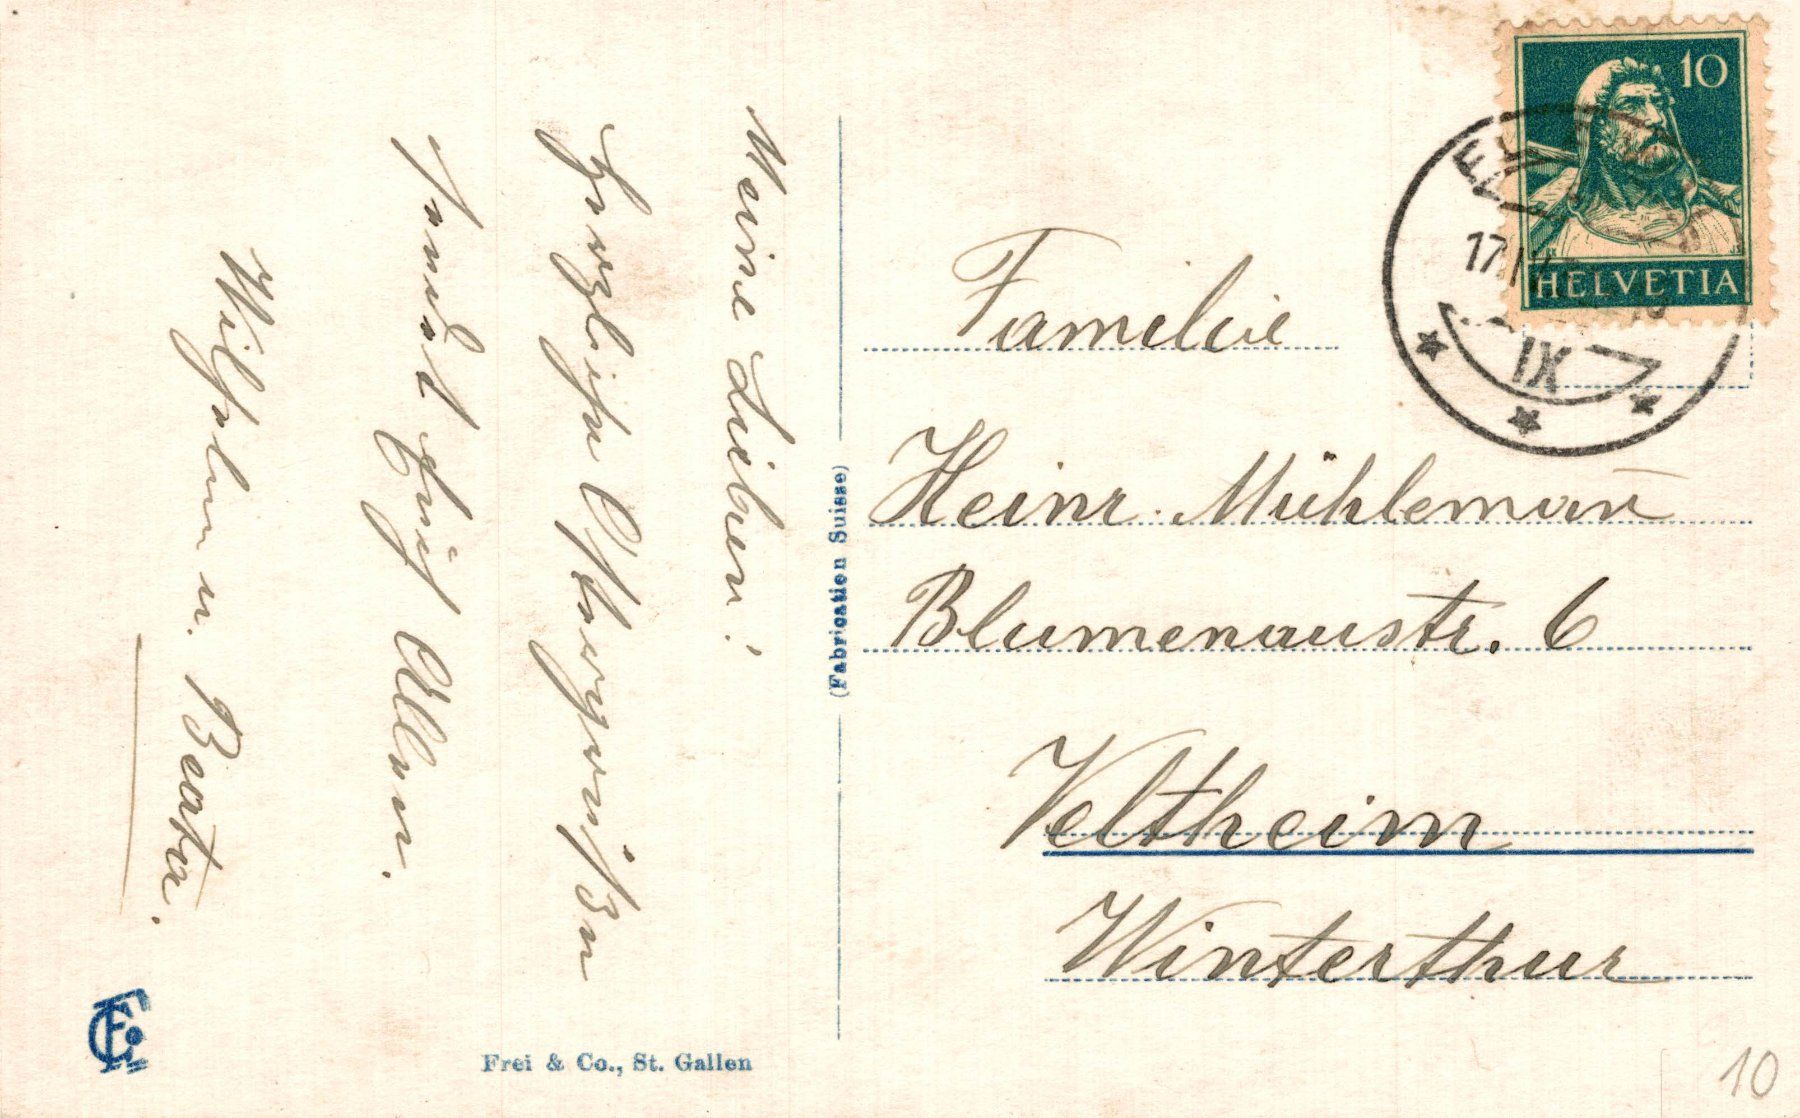 Meine Lieben!
Herzliche Ostergrüße
sendet Euch Allen.
Wilhelm u. Beata.
(Fabrication Suisse)
Frei & Co., St. Gallen
10
HELVETIA
17.
IX
Familie
Heinr. Mühleman̄
Blumenaustr. 6
Veltheim
Winterthur
10